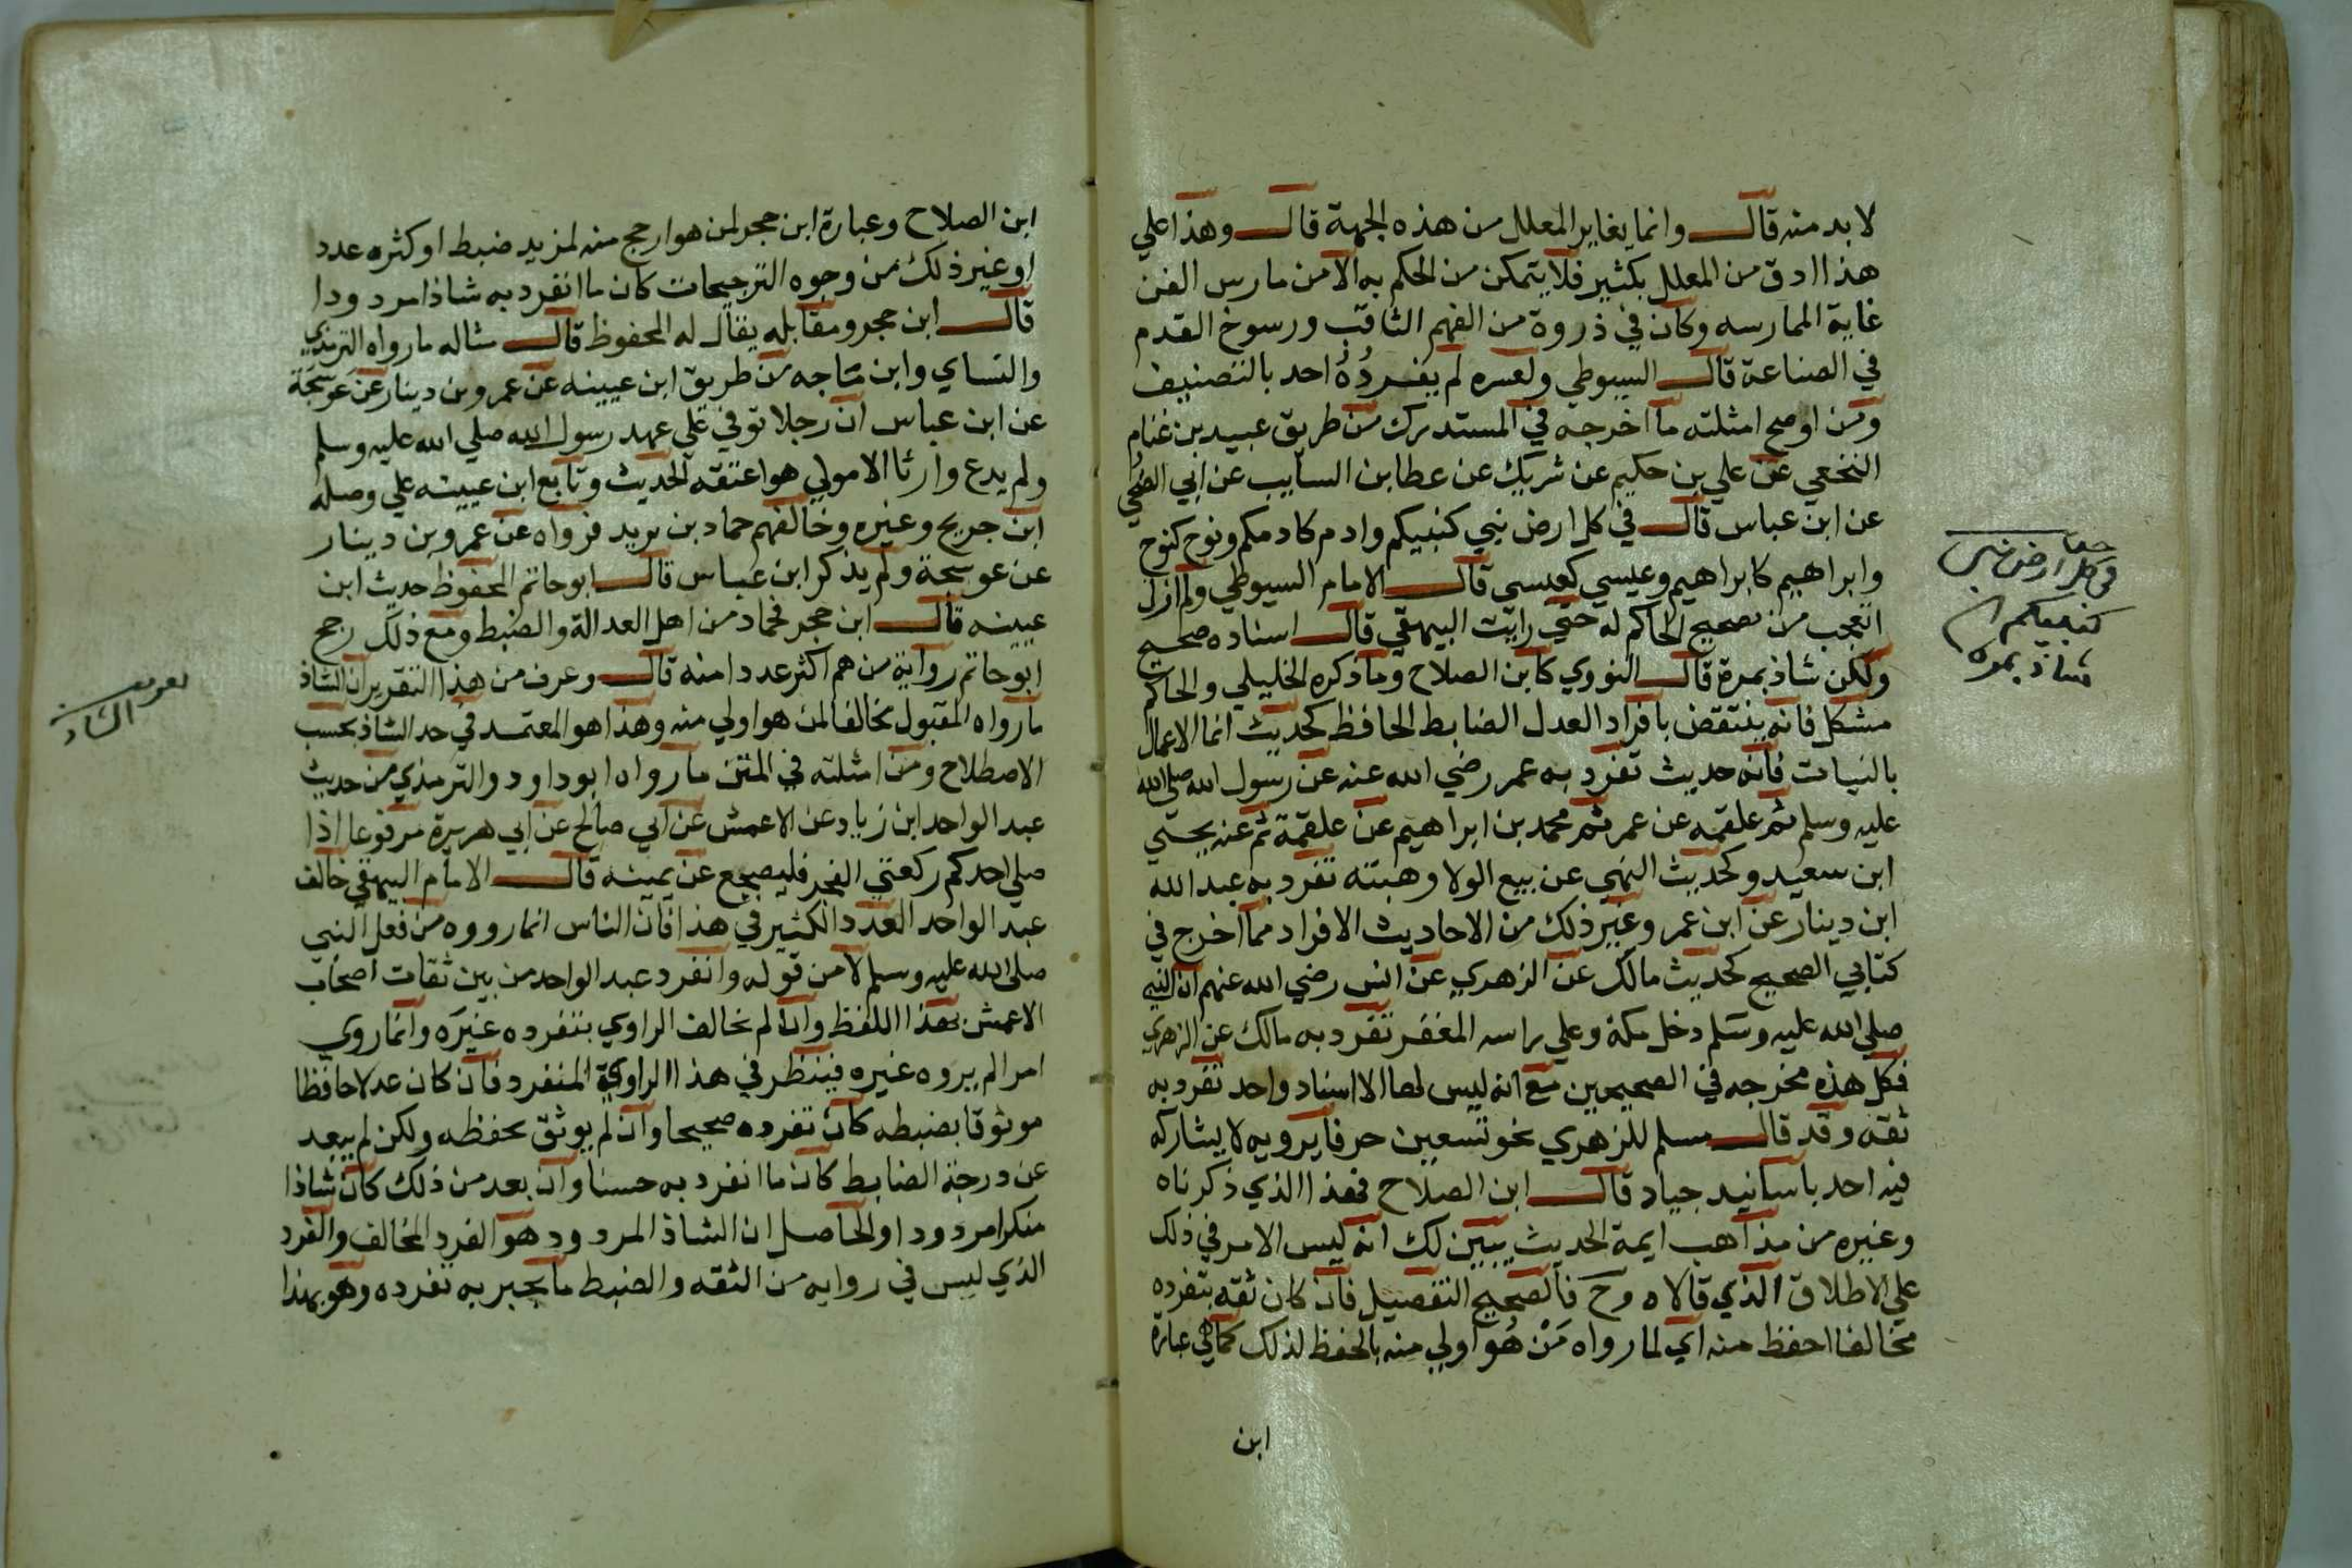 لا بد منه قال وانما يغاير المعلل من هذه الجهة قال وهذا علي
هذا ادق من المعلل بكثير فلا يتمكن من الحكم به الا من مارس الفن
غاية الممارسه وكان في ذروة من الفهم الثاقب ورسوخ القدم
في الصناعة قال السيوطي ولعسره لم يفرده احد بالتصنيف
ومن اوضح امثلته ما اخرجه في المستدرك من طريق عبيد بن غنام
النخعي عن علي بن حكيم عن شريك عن عطا بن السايب عن ابي الضحي
عن ابن عباس قال في كل ارض نبي كنبيكم وادم كادمكم ونوح كنوح
وابراهيم كابراهيم وعيسي كعيسي قال الامام السيوطي ولم ازل
اتعجب من تصحيح الحاكم له حتي رايت البيهقي قال اسناده صحيح
ولكن شاذ بمرة قال النووي كابن الصلاح وما ذكره الخليلي والحاكم
مشكل فانه ينتقض بافراد العدل الضابط الحافظ كحديث انما الاعمال
بالنيات فانه حديث تفرد به عمر رضي الله عنه عن رسول الله صلي الله
عليه وسلم ثم علقمه عن عمر ثم محمد بن ابراهيم عن علقمة ثم عنه يحيي
ابن سعيد وكحديث النهي عن بيع الولا وهبته تفرد به عبد الله
ابن دينار عن ابن عمر وغير ذلك من الاحاديث الافراد مما اخرج في
كتابي الصحيح كحديث مالك عن الزهري عن انس رضي الله عنهم ان النبي
صلي الله عليه وسلم دخل مكة وعلي راسه المغفر تفرد به مالك عن الزهري
فكل هذه مخرجه في الصحيحين مع انه ليس لها الا اسناد واحد تفرد به
ثقه وقد قال مسلم للزهري نحو تسعين حرفا يرويه لا يشاركه
فيه احد باسانيد جياد قال ابن الصلاح فهذا الذي ذكرناه
وغيره من مذاهب ايمة الحديث يبين لك انه ليس الامر في ذلك
علي الاطلاق الذي قالاه وح فالصحيح التفصيل فان كان ثقه بتفرده
مخالفا احفظ منه اي لما رواه من هو اولي منه بالحفظ لذلك كما في عبارة
ابن
في كل ارض نبي
كنبيكم
شاذ بمره
ابن الصلاح وعبارة ابن حجر لمن هو ارجح منه لمزيد ضبط او كثره عدد
او غير ذلك من وجوه الترجيحات كان ما انفرد به شاذا مردودا
قال ابن حجر ومقابله يقال له المحفوظ قال مثاله ما رواه الترمذي
والنساي وابن ماجه من طريق ابن عيينه عن عمرو بن دينار عن عوسجة
عن ابن عباس ان رجلا توفي علي عهد رسول الله صلي الله عليه وسلم
ولم يدع وارثا الا مولي هو اعتقه الحديث وتابع ابن عيينه علي وصله
ابن جريج وغيره وخالفهم حماد بن يزيد فرواه عن عمرو بن دينار
عن عوسجة ولم يذكر ابن عباس قال ابو حاتم المحفوظ حديث ابن
عيينه قال ابن حجر فحماد من اهل العدالة والضبط ومع ذلك رجح
ابو حاتم رواية من هم اكثر عددا منه قال وعرف من هذا التقرير ان الشاذ
ما رواه المقبول مخالفا لمن هو اولي منه وهذا هو المعتمد في حد الشاذ بحسب
الاصطلاح ومن امثلته في المتن ما رواه ابو داود والترمذي من حديث
عبد الواحد ابن زياد عن الاعمش عن ابي صالح عن ابي هريرة مرفوعا اذا
صلي احدكم ركعتي الفجر فليضجع عن يمينه قال الامام البيهقي خالف
عبد الواحد العدد الكثير في هذا فان الناس انما رووه من فعل النبي
صلي الله عليه وسلم لا من قوله وانفرد عبد الواحد من بين ثقات اصحاب
الاعمش بهذا اللفظ وان لم يخالف الراوي بتفرده غيره وانما روي
امرا لم يروه غيره فينظر في هذا الراوي المنفرد فان كان عدلا حافظا
موثوقا بضبطه كان تفرده صحيحا وان لم يوثق بحفظه ولكن لم يبعد
عن درجة الضابط كان ما انفرد به حسنا وان بعد من ذلك كان شاذا
منكرا مردودا والحاصل ان الشاذ المردود هو الفرد المخالف والفرد
الذي ليس في روايه من الثقه والضبط ما يجبر به تفرده وهو بهذا
تعريف
الشاذ